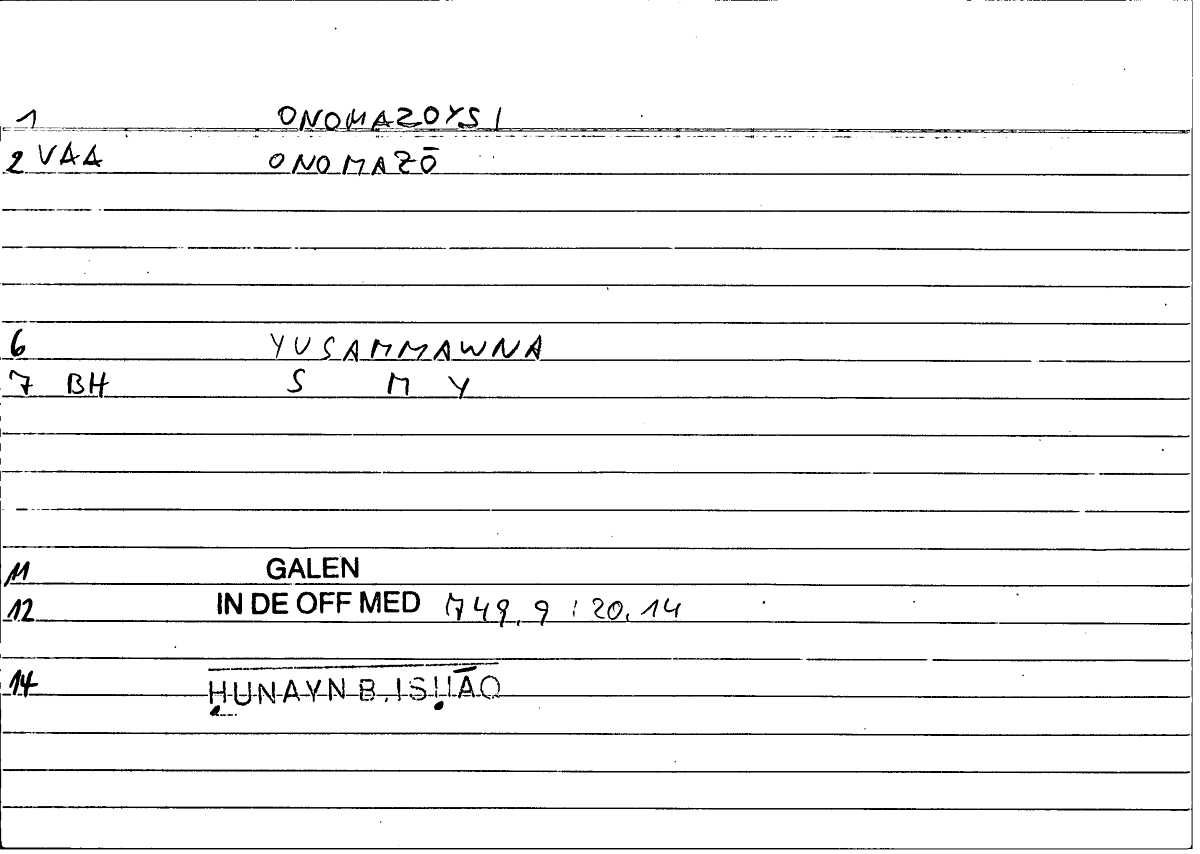 1 ONOMAZOYSI
2 VAA ONOMAZŌ
6 YUSAMMAWNA
7 BH S M Y
11 GALEN
12 IN DE OFF MED 749,9 : 20,14
14 ḤUNAYN B. ISḤĀQ